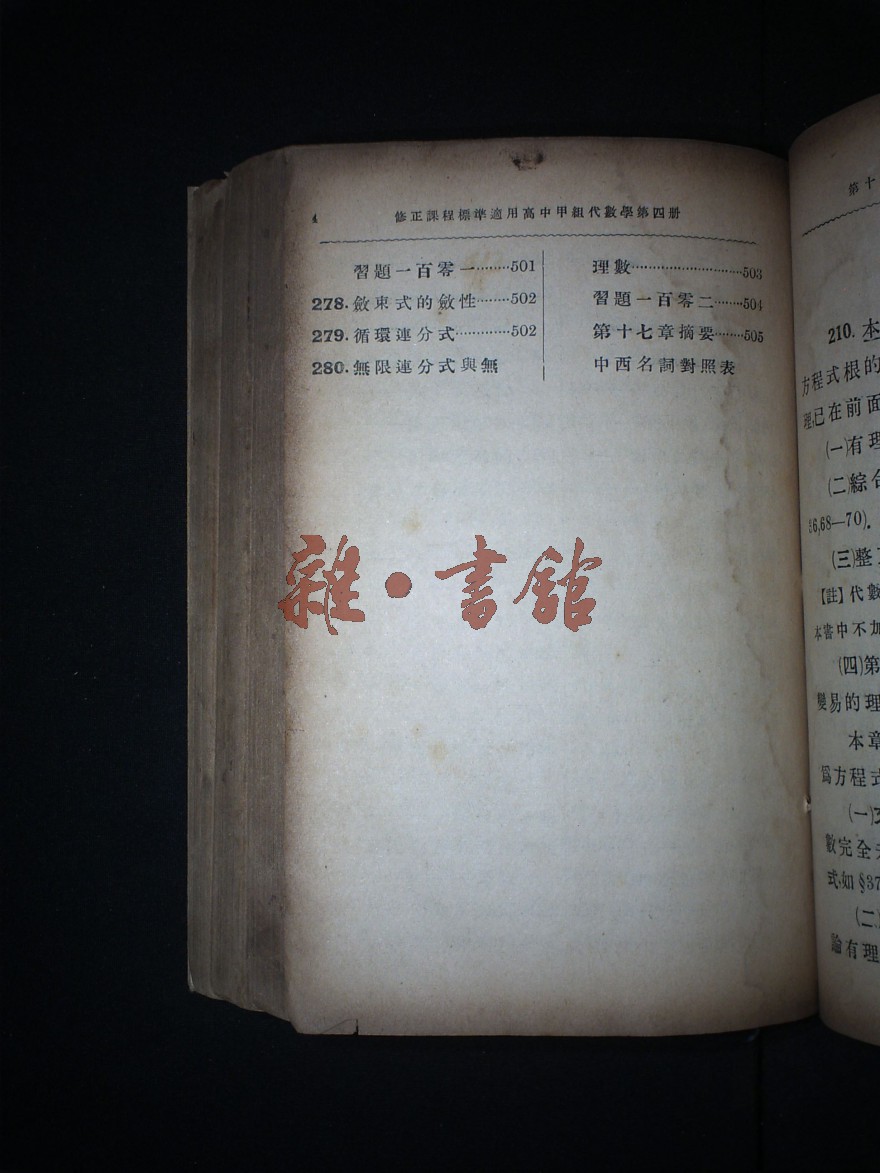 4
修正課程標準適用高中甲組代數學第四册
習題一百零一………501
278.斂束式的斂性………502
279.循環連分式…………502
280.無限連分式與無
理數………………………503
習題一百零二………504
第十七章摘要………505
中西名詞對照表
雜·書館
第十
210. 本
方程式根的
理,已在前面
(一)有理
(二)綜合
68—70).
(三)整
【註】代數
本書中不加
(四)第
變易的理
本章
爲方程式
(一)
數完全
式,如 §37
(二)
論有理